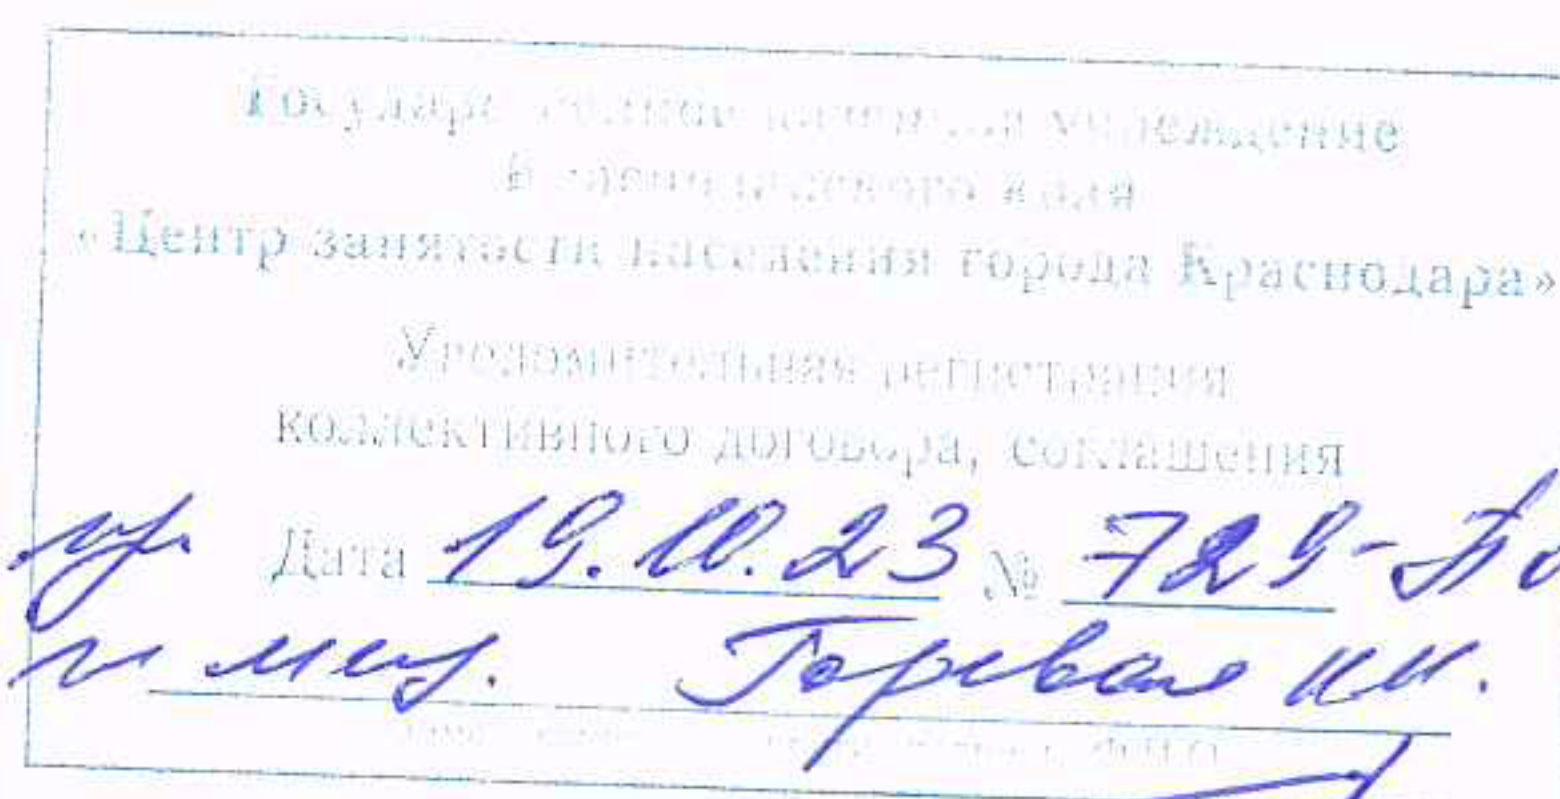 Государственное казенное учреждение
Краснодарского края
«Центр занятости населения города Краснодара»
Уведомительная регистрация
коллективного договора, соглашения
Дата 19.10.23 № 729-